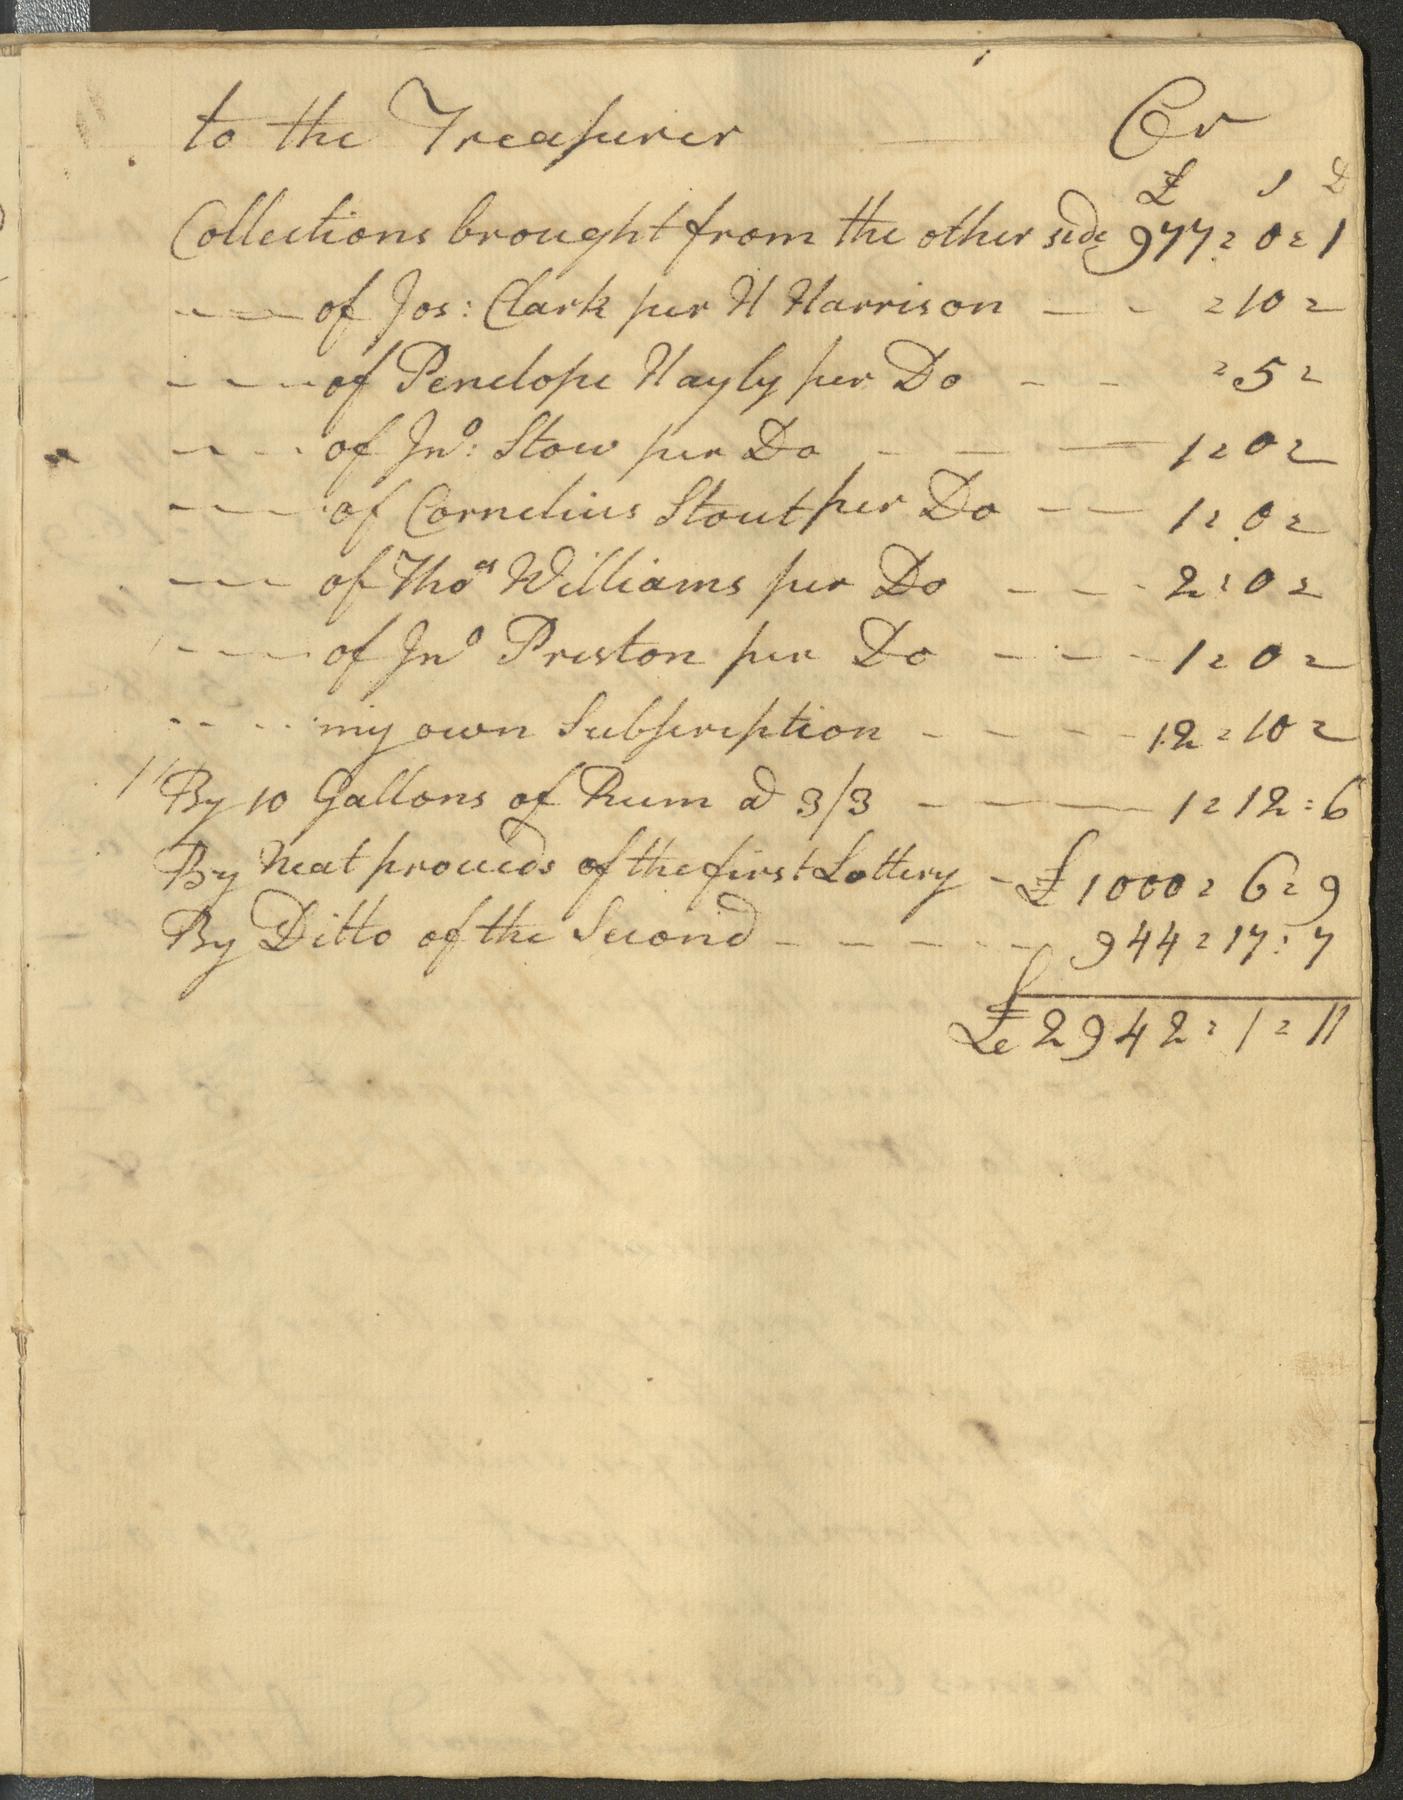 to the Treasurer Cr
£ s D
Collections brought from the other side 977 = 0 = 1
— — — of Jos: Clark per H Harrison — - = 10 =
- - - of Penelope Hayly per Do - - = 5 =
- - - of Jno: Stow per Do - — — 1 = 0 =
- - - of Cornelius Stout per Do - — 1 = 0 =
- - - of Thoas Williams per Do - - - 2 = 0 =
- - - of Jno Preston per Do - - - 1 = 0 =
- - - my own Subscription - - - - 12 = 10 =
By 10 Gallons of Rum @ 3/3 - — — 1 = 12 = 6
By Neat proceeds of the first Lottery - £ 1000 = 6 = 9
By Ditto of the Second - - - - - 944 = 17 = 7
£ 2942 = 1 = 11